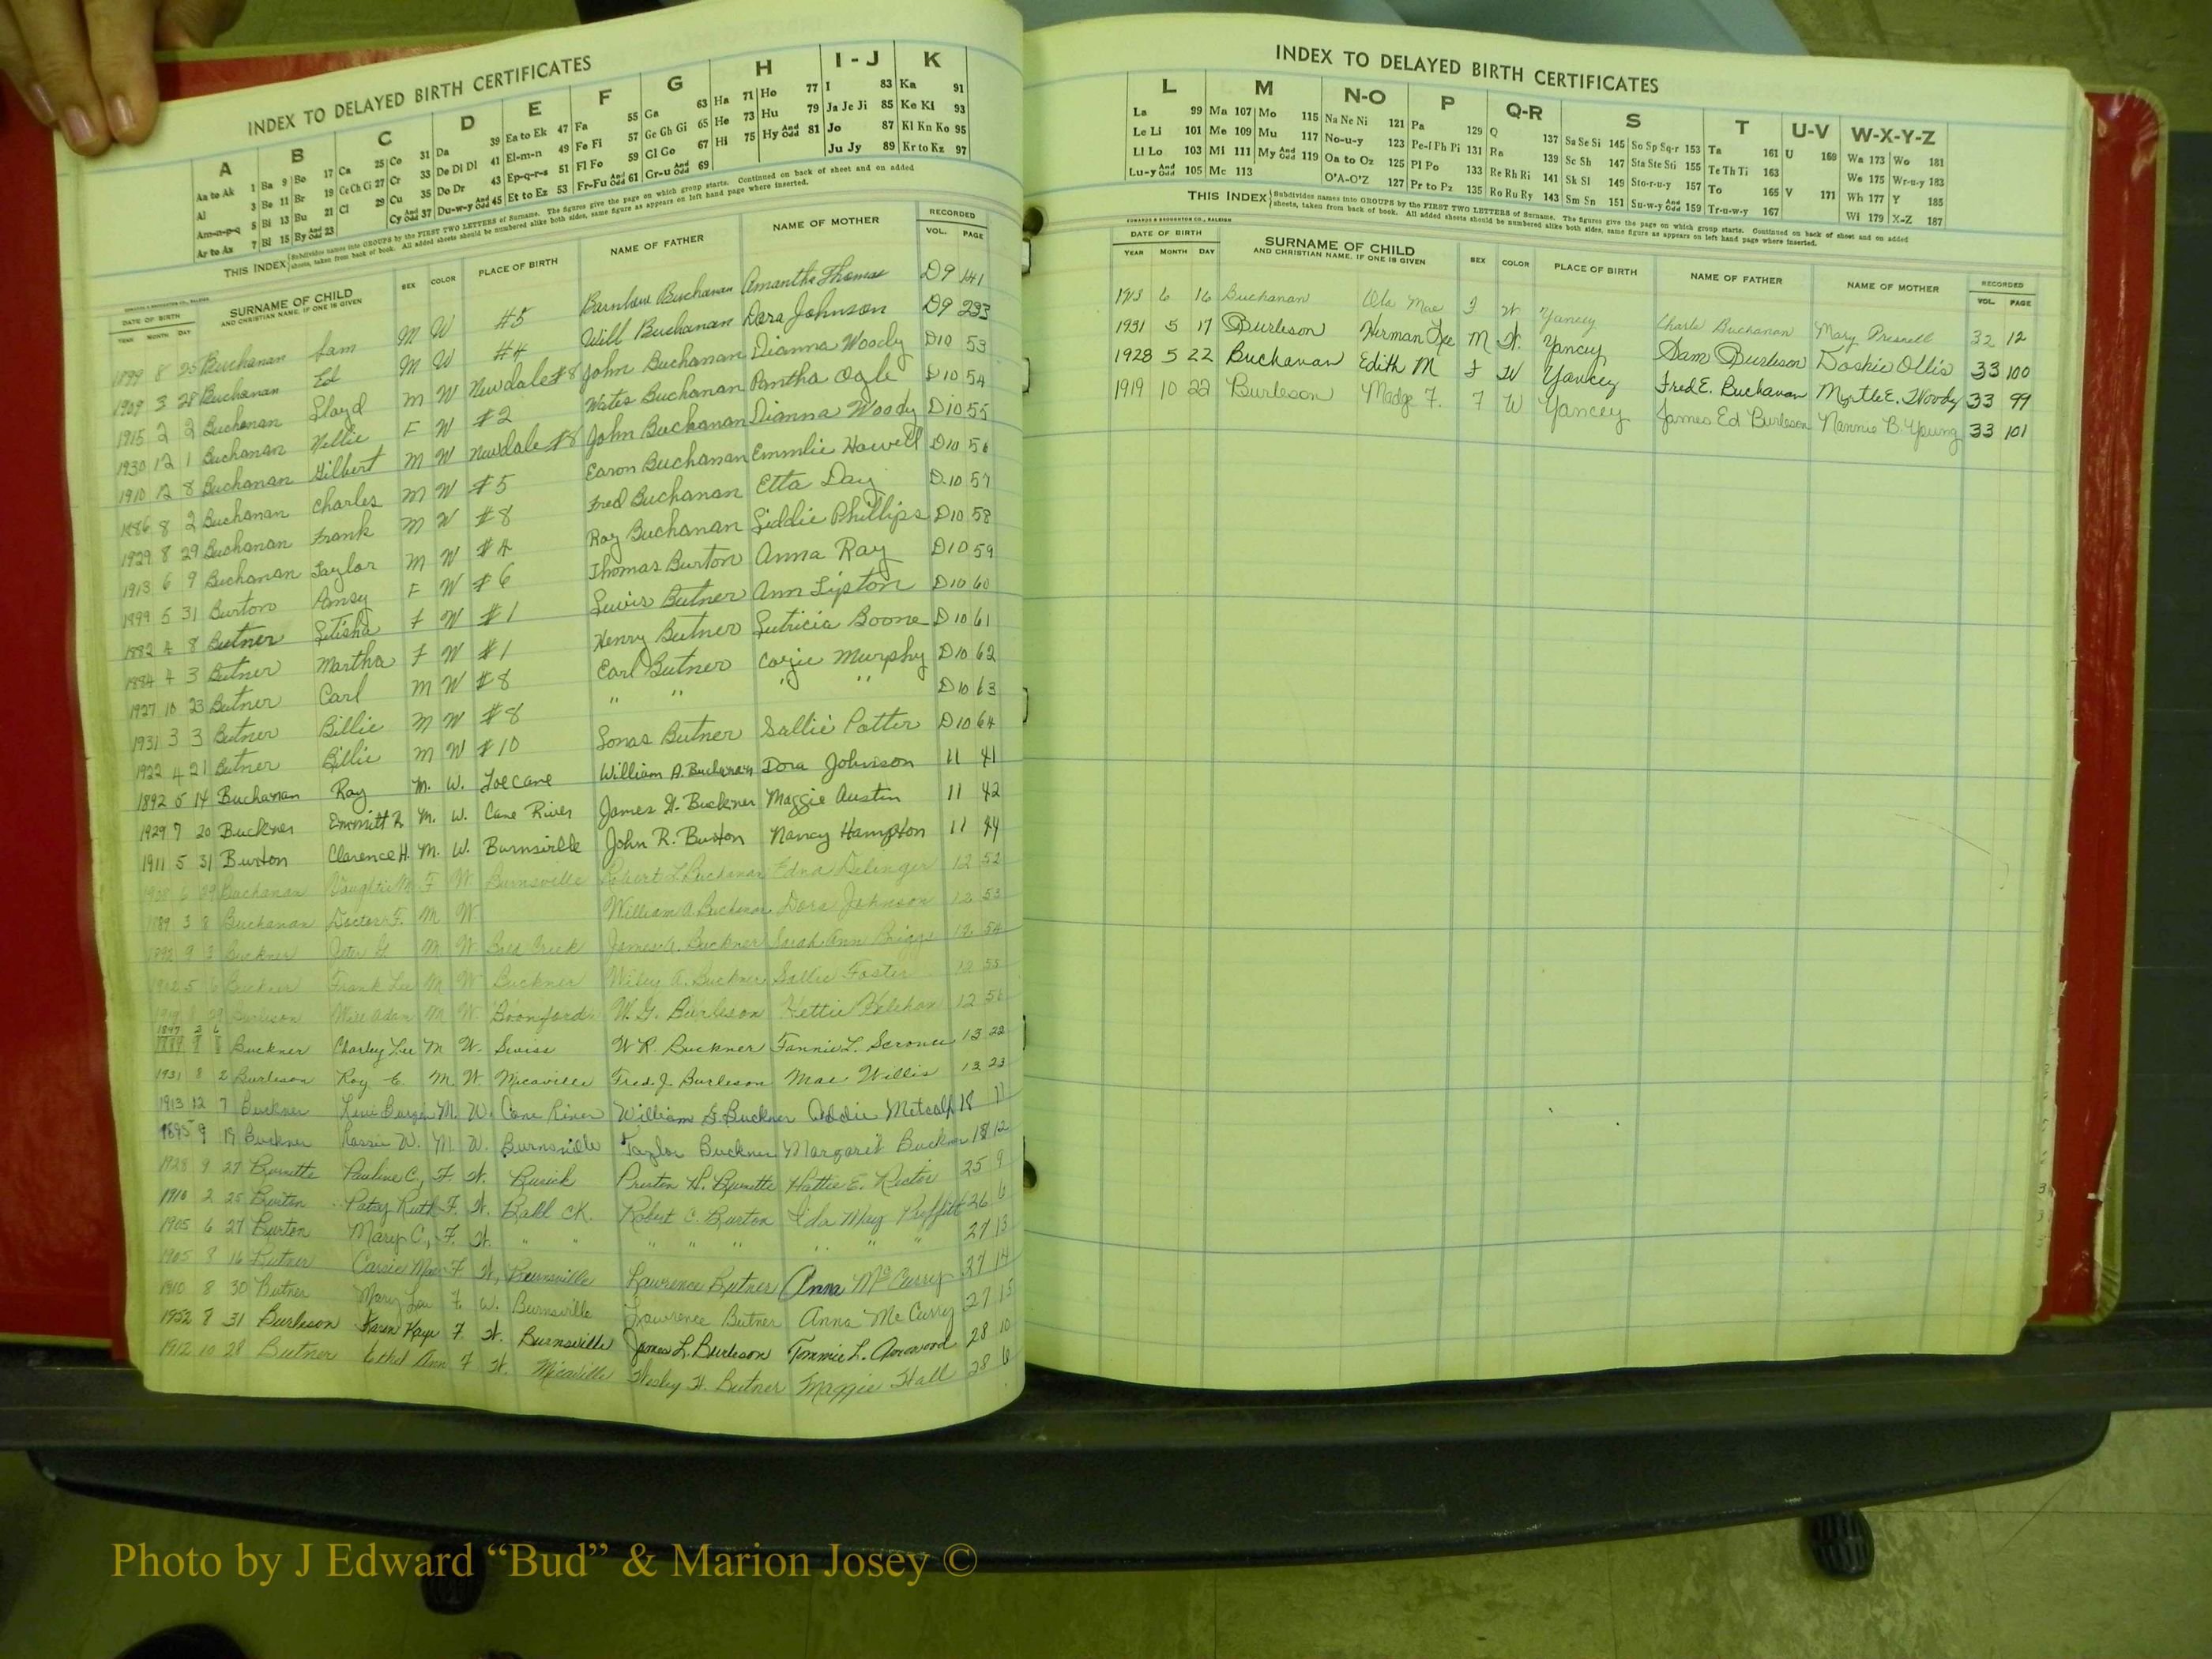 INDEX TO DELAYED BIRTH CERTIFICATES
A B C D E F G H I - J K
Aa to Ak 1 Ba 9 Bo 17 Ca 25 Co 31 Da 39 Ea to Ek 47 Fa 55 Ga 63 Ha 71 Ho 77 I 83 Ka 91
Al 3 Be 11 Br 19 Ce Ch Ci 27 Cr 33 De Di Dl 41 El-m-n 49 Fe Fi 57 Ge Gh Gi 65 He 73 Hu 79 Ja Je Ji 85 Ke Ki 93
Am-n-p-q 5 Bi 13 Bu 21 Cl 29 Cu 35 Do Dr 43 Ep-q-r-s 51 Fl Fo 59 Gl Go 67 Hi 75 Hy And Odd 81 Jo 87 Kl Kn Ko 95
Ar to Ax 7 Bl 15 By And Odd 23 Cy And Odd 37 Du-w-y And Odd 45 Et to Ez 53 Fr-Fu And Odd 61 Gr-u And Odd 69 Ju Jy 89 Kr to Kz 97
THIS INDEX Subdivides names into GROUPS by the FIRST TWO LETTERS of Surname. The figures give the page on which group starts. Continued on back of sheet and on added
sheets, taken from back of book. All added sheets should be numbered alike both sides, same figure as appears on left hand page where inserted.
DATE OF BIRTH SURNAME OF CHILD SEX COLOR PLACE OF BIRTH NAME OF FATHER NAME OF MOTHER RECORDED
YEAR MONTH DAY AND CHRISTIAN NAME, IF ONE IS GIVEN VOL. PAGE
1899 8 25 Buchanan Sam M W #5 Buchanan Amantha Thomas D9 141
1909 3 28 Buchanan Ed M W #4 Will Buchanan Dora Johnson D9 233
1915 2 2 Buchanan Lloyd M W Newdale #8 John Buchanan Dianna Woody D10 53
1930 12 1 Buchanan Nellie F W #2 Wates Buchanan Pantha Ogle D10 54
1910 12 8 Buchanan Gilbert M W Newdale #8 John Buchanan Dianna Woody D10 55
1886 8 2 Buchanan Charles M W #5 Earon Buchanan Emmlie Howell D10 56
1929 8 29 Buchanan Frank M W #8 Fred Buchanan Etta Day D10 57
1913 6 9 Buchanan Taylor M W #4 Roy Buchanan Liddie Phillips D10 58
1899 5 31 Burton F W #6 Thomas Burton Anna Ray D10 59
1882 4 8 Butner Letisha F W #1 Lewis Butner Ann Lipton D10 60
1884 4 3 Butner Martha F W #1 Henry Butner Lutricia Boone D10 61
1927 10 23 Butner Carl M W #8 Carl Butner Murphy D10 62
1931 3 3 Butner Billie M W #8 " " " " D10 63
1922 4 21 Butner Billie M W #10 Butner Sallie Potter D10 64
1892 5 14 Buchanan Roy M. W. Toecane William A. Buchanan Dora Johnson 11 41
1929 7 20 Buckner Emmitt R M. W. Cane River James H. Buckner Maggie Austin 11 42
1911 5 31 Burton Clarence H. M. W. Burnsville John R. Burton Nancy Hampton 11 44
6 29 Buchanan F W. Burnsville Robert L. Buchanan Edna Delinger 12 52
1889 3 8 Buchanan Doctor F. M W William A. Buchanan Dora Johnson 12 53
9 3 Buckner M W Bald Creek James A. Buckner Sarah Ann Briggs 12 54
5 6 Buckner Frank Lee M W Buckner Wiley A. Buckner Sallie Foster 12 55
29 Burleson Will Adam M W. Boonford W. G. Burleson Hettie 12 56
1897 2 6
1889 8 8 Buckner Charley Lee M W. Swiss W R. Buckner Fannie L. 13 22
1931 8 2 Burleson Roy E. M W. Micaville Fred. J. Burleson Mae Willis 13 23
1913 12 7 Buckner Levi M. W. Cane River William G. Buckner Addie Metcalf 18 11
1895 9 19 Buckner W. M. W. Burnsville Taylor Buckner Margaret Buckner 18 12
1928 9 27 Burnette Pauline C, F. W. Busick Preston H. Burnette Hattie E. Rector 25 9
1910 2 25 Burton Patsy Ruth F. W. Ball CK. Robert C. Burton Ida May Proffitt 26 6
1905 6 27 Burton Mary C, F. W. " " " " " " " " 27 13
1905 8 16 Butner Carrie Mae F W, Burnsville Lawrence Butner Anna McCurry 27 14
1910 8 30 Butner Mary Lou F. W. Burnsville Lawrence Butner Anna McCurry 27 15
1952 8 31 Burleson Karen Kaye F. W. Burnsville James L. Burleson Tommie L. Arrowood 28 10
1912 10 28 Butner Ethel Ann F W. Micaville Wesley H. Butner Maggie Hall 28 6
INDEX TO DELAYED BIRTH CERTIFICATES
L M N-O P Q-R S T U-V W-X-Y-Z
La 99 Ma 107 Mo 115 Na Ne Ni 121 Pa 129 Q 137 Sa Se Si 145 So Sp Sq-r 153 Ta 161 U 169 Wa 173 Wo 181
Le Li 101 Me 109 Mu 117 No-u-y 123 Pe-f Ph Pi 131 Ra 139 Sc Sh 147 Sta Ste Sti 155 Te Th Ti 163 We 175 Wr-u-y 183
Ll Lo 103 Mi 111 My And Odd 119 Oa to Oz 125 Pl Po 133 Re Rh Ri 141 Sk Sl 149 Sto-r-u-y 157 To 165 V 171 Wh 177 Y 185
Lu-y And Odd 105 Mc 113 O'A-O'Z 127 Pr to Pz 135 Ro Ru Ry 143 Sm Sn 151 Su-w-y And Odd 159 Tr-u-w-y 167 Wi 179 X-Z 187
THIS INDEX Subdivides names into GROUPS by the FIRST TWO LETTERS of Surname. The figures give the page on which group starts. Continued on back of sheet and on added
sheets, taken from back of book. All added sheets should be numbered alike both sides, same figure as appears on left hand page where inserted.
EDWARDS & BROUGHTON CO., RALEIGH
DATE OF BIRTH SURNAME OF CHILD SEX COLOR PLACE OF BIRTH NAME OF FATHER NAME OF MOTHER RECORDED
YEAR MONTH DAY AND CHRISTIAN NAME, IF ONE IS GIVEN VOL. PAGE
1913 6 16 Buchanan Ola Mae F W Yancey Charls Buchanan Mary Presnell 32 12
1931 5 17 Burleson Herman Lee M W. Yancey Sam Burleson Doskie Ollis 33 100
1928 5 22 Buchanan Edith M F W Yancey Fred E. Buchanan Myrtle E. Woody 33 99
1919 10 22 Burleson Madge F. F W Yancey James Ed Burleson Nannie B. Young 33 101
Photo by J Edward “Bud” & Marion Josey ©